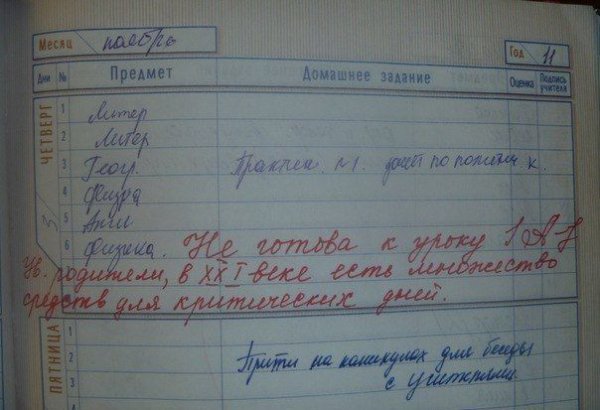 Месяц ноябрь
Год 11
Дни № Предмет Домашнее задание Оценка Подпись учителя
ЧЕТВЕРГ
3
1 Литер
2 Литер
3 Геогр. Практич. №1.
4 Физра
5 Англ
6 Физика. Не готова к уроку
Ув. родители, в XXI веке есть множество
средств для критических дней.
ПЯТНИЦА
1
2 Прийти на каникулах для беседы
3 с учителями